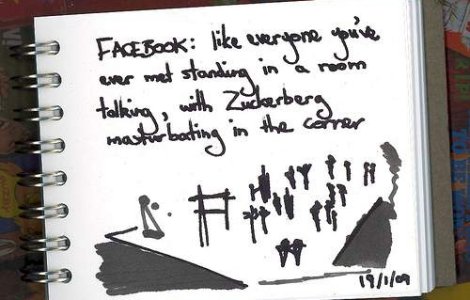 FACEBOOK: like everyone you've
ever met standing in a room
talking, with Zuckerberg
masturbating in the corner
19/1/09